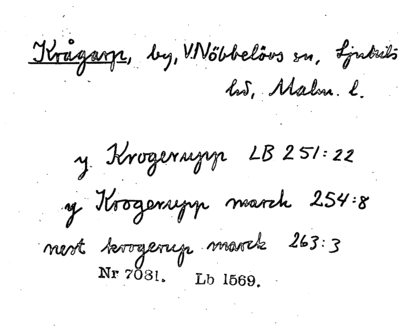 Krågarp, by, V. Nöbbelövs sn, Ljunits
hd, Malm. l.
y Krogerupp LB 251:22
y Krogerupp marck 254:8
nest krogerup marck 263:3
Nr 7081. Lb 1569.